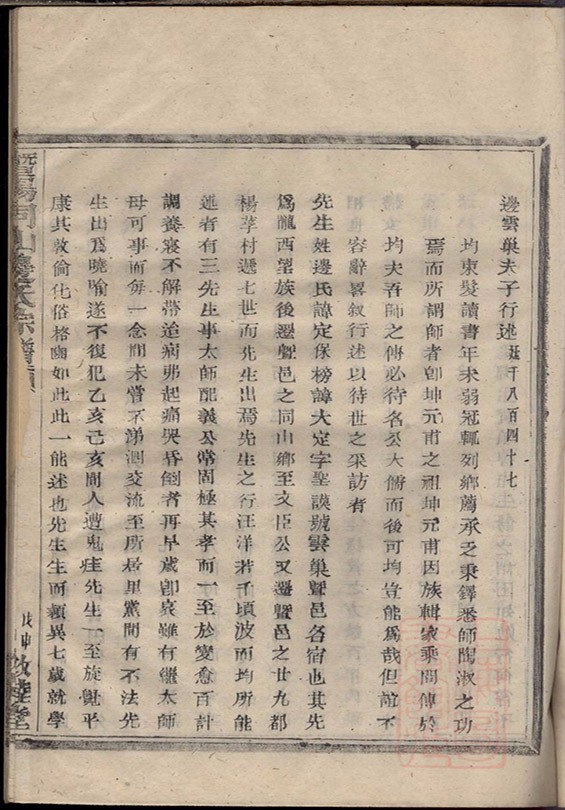 邊雲巢夫子行述 廷千八百四十七
均束髮讀書年未弱冠輒列鄉薦承乏秉鐸悉師陶淑之功
焉而所謂師者卽坤元甫之祖坤元甫因族輯家乘問傳於
均夫吾師之傳必待名公大儒而後可均豈能爲哉但誼不
容辭畧叙行述以待世之采訪者
先生姓邊氏諱定保榜諱大定字聖謨號雲巢暨邑名宿也其先
爲隴西望族後遷暨邑之同山鄉至文臣公又遷暨邑之廿九都
楊莩村遞七世而先生出焉先生之行汪洋若千頃波而均所能
述者有三先生事太師配義公常固極其孝而一至於變愈百計
調養衰不解帶迨病弗起痛哭昏倒者再早歲卽哀雖有繼太師
母可事而每一念間未嘗不涕泗交流至所居里黨間有不法先
生出爲曉喻遂不復犯乙亥己亥間人遭鬼疰先生一至旋覺平
康其敦倫化俗格幽如此此一能述也先生生而穎異七歲就學
暨陽同山邊氏宗譜
戊申 敘睦堂